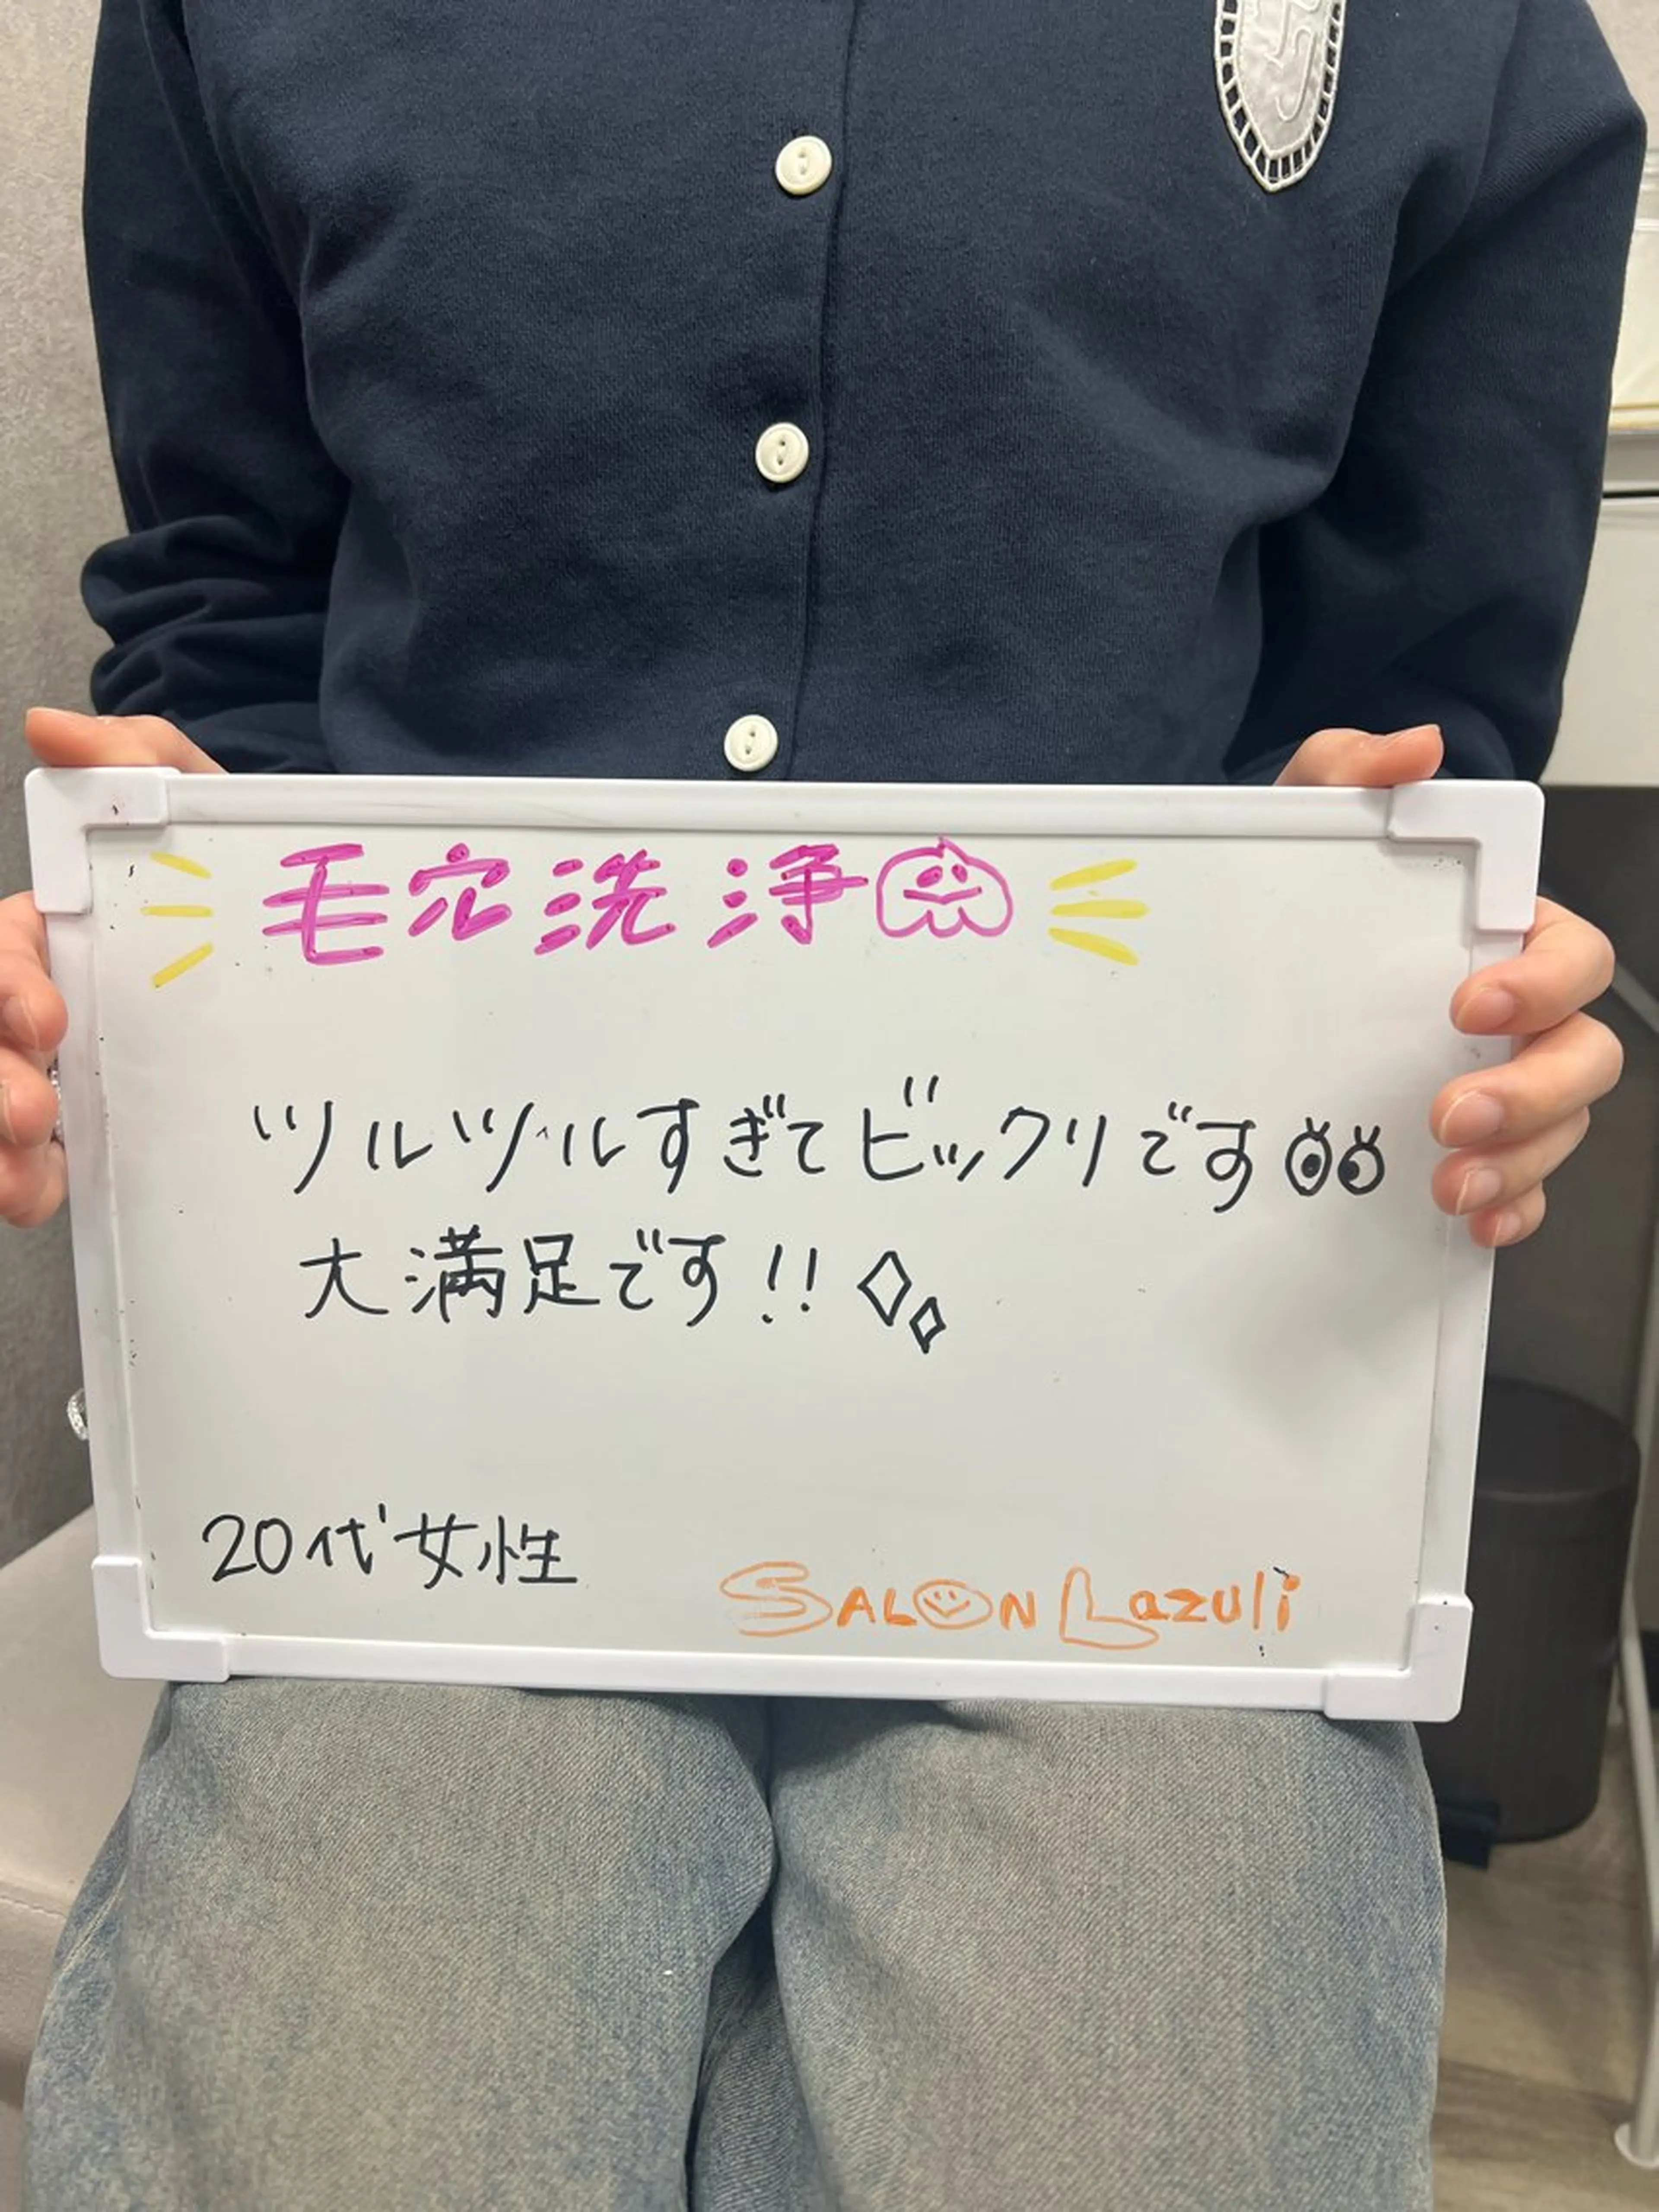 毛穴洗浄
ツルツルすぎてビックリです
大満足です!!
20代女性
SALON Lazuli